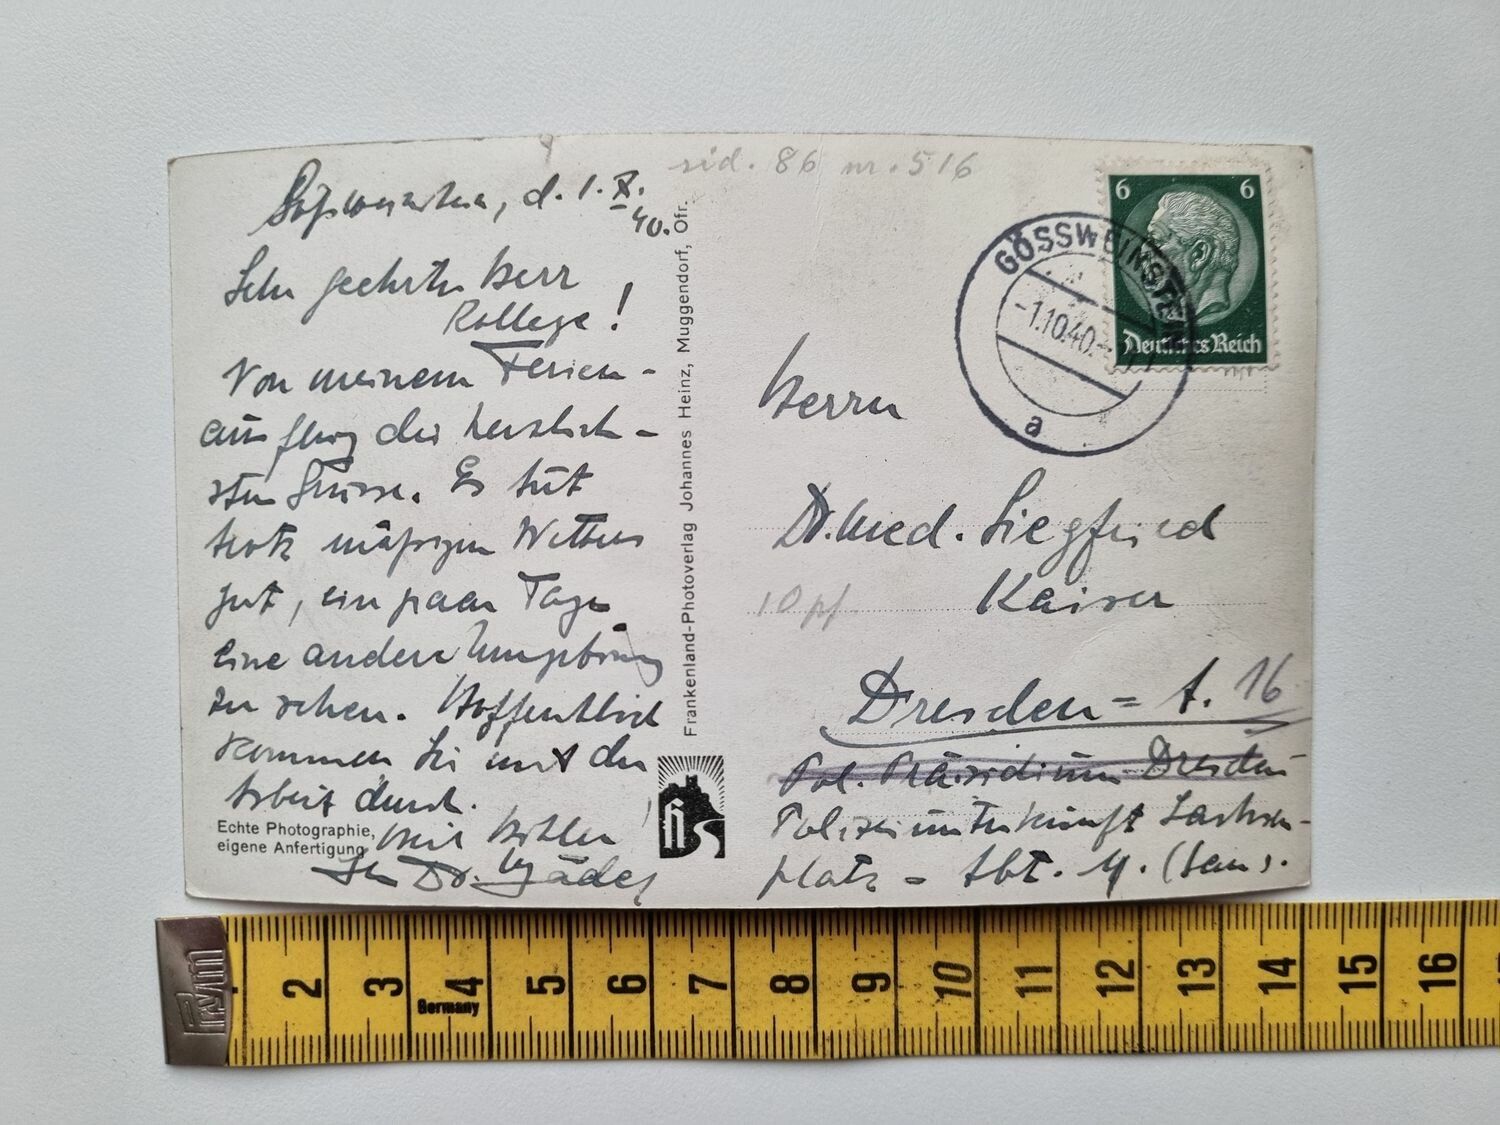 sid. 86 nr. 516
Gößweinstein, d. 1. X. 40.
Sehr geehrter Herr
Kollege!
Von meinem Ferien-
ausflug die herzlich-
sten Grüsse. Es tut
trotz mäßigen Wetters
gut, ein paar Tage
eine andere Umgebung
zu sehen. Hoffentlich
kommen Sie mit der
Arbeit durch.
Heil Hitler
Ihr Dr.
Echte Photographie,
eigene Anfertigung
Frankenland-Photoverlag Johannes Heinz, Muggendorf, Ofr.
6 6
Deutsches Reich
GÖSSWEINSTEIN
-1.10.40.-
a
Herrn
Dr. med. Siegfried
Kaiser
10 pf.
Dresden = A. 16
Pol. Präsidium Dresden
Polizeiunterkunft Sachsen-
platz - Abt. (San).
Prym
2 3 4 5 6 7 8 9 10 11 12 13 14 15 16
Germany